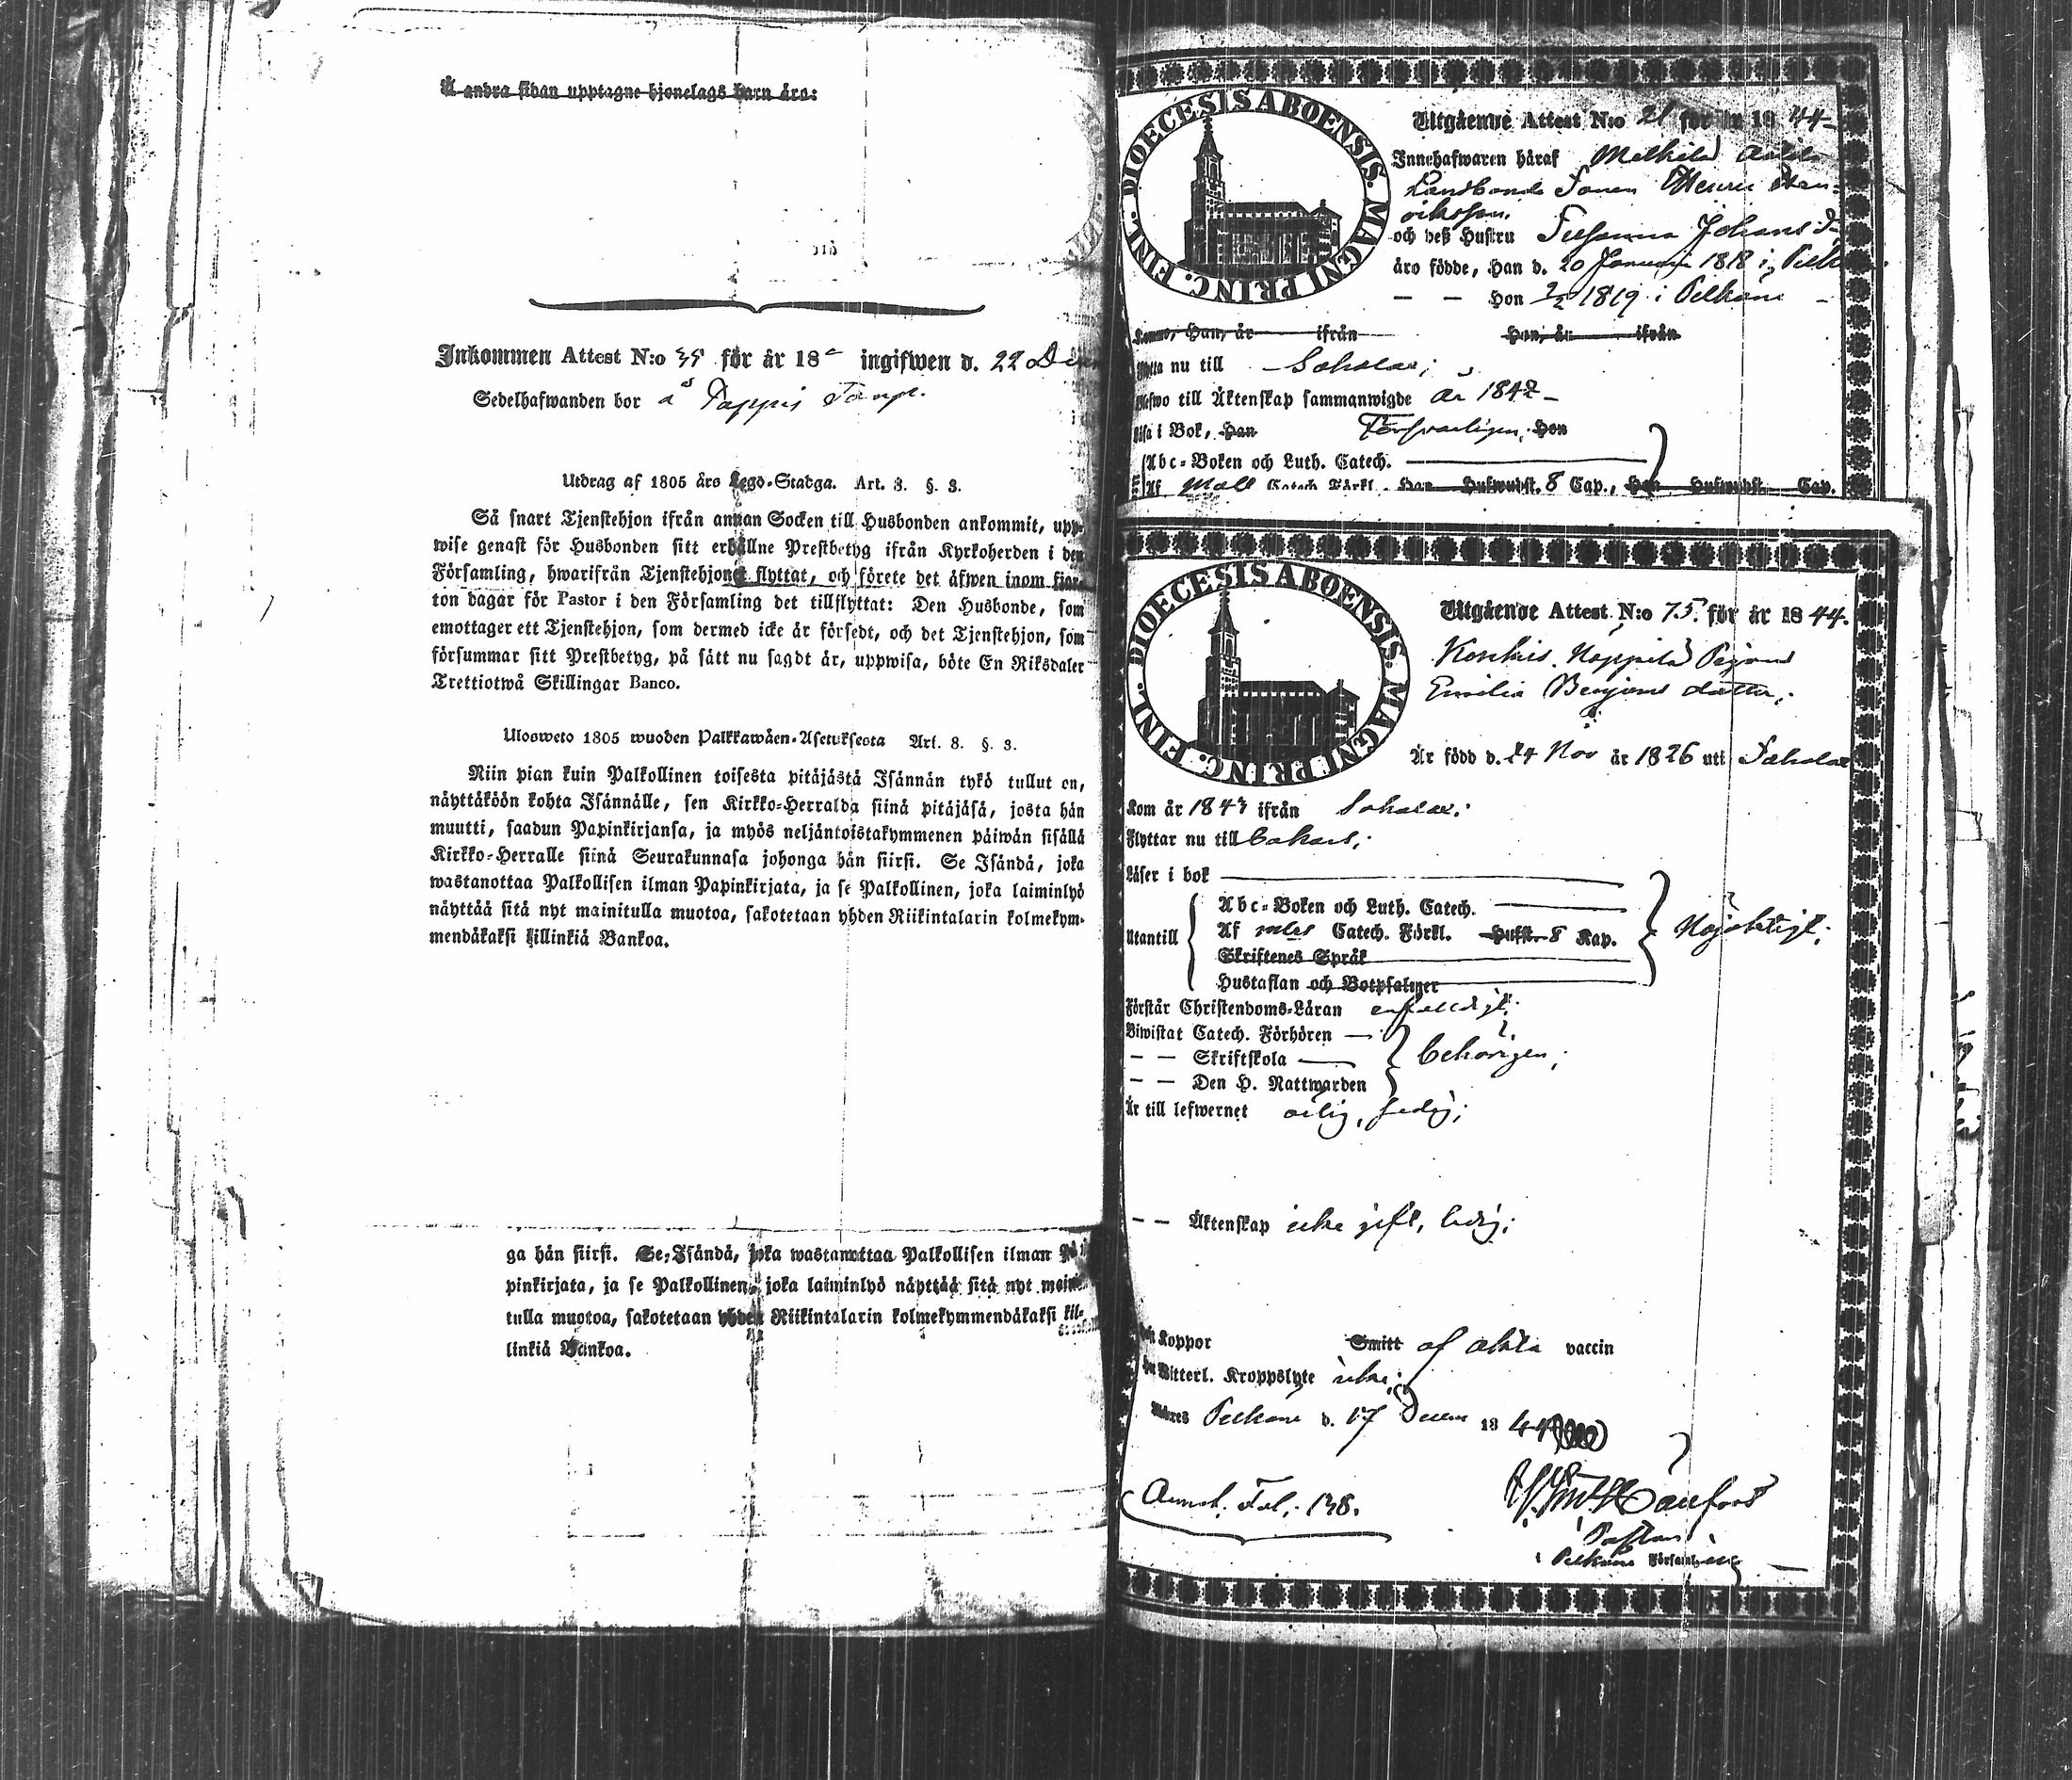 Å andra sidan upptagne hjonelags barn äro:
Inkommen Attest N:o 35 för år 18 ingifwen d. 22
Sedelhafwanden bor å
Utdrag af 1805 års Lego-Stadga. Art. 8. §. 3.
Så snart Tjenstehjon ifrån annan Socken till Husbonden ankommit, upp-
wise genast för Husbonden sitt erhållne Prestbetyg ifrån Kyrkoherden i den
Församling, hwarifrån Tjenstehjonet flyttat, och förete det äfwen inom fjor-
ton dagar för Pastor i den Församling det tillflyttat: Den Husbonde, som
emottager ett Tjenstehjon, som dermed icke är försedt, och det Tjenstehjon, som
försummar sitt Prestbetyg, på sätt nu sagdt är, uppwisa, böte En Riksdaler
Trettiotwå Skillingar Banco.
Ulosweto 1805 wuoden Palkkawäen-Asetuksesta Art. 8. §. 3.
Niin pian kuin Palkollinen toisesta pitäjästä Isännän tykö tullut on,
näyttäköön kohta Isännälle, sen Kirkko-Herralda siinä pitäjäsä, josta hän
muutti, saadun Papinkirjansa, ja myös neljäntoistakymmenen päiwän sisällä
Kirkko-Herralle siinä Seurakunnasa johonga hän siirsi. Se Isändä, joka
wastanottaa Palkollisen ilman Papinkirjata, ja se Palkollinen, joka laiminlyö
näyttää sitä nyt mainitulla muotoa, sakotetaan yhden Riikintalarin kolmekym-
mendäkaksi killinkiä Bankoa.
ga hän siirsi. Se, Isändä, joka wastanottaa Palkollisen ilman Pa-
pinkirjata, ja se Palkollinen, joka laiminlyö näyttää sitä nyt maini-
tulla muotoa, sakotetaan yhden Riikintalarin kolmekymmendäkaksi kil-
linkiä Bankoa.
DIOECESIS ABOENSIS. MAGNI PRINC. FINL.
Utgående Attest N:o 21 för år 18 44
Innehafwaren häraf
Landbonde Sonen
och deß Hustru Susanna Johans
äro födde, Han d. 20 Januari 1818 i
— — Hon 1819 i Pelkäne
Komne, Han, år ifrån Hon, år ifrån
nu till Sahalax;
till Äktenskap sammanwigde år 1842
i Bok, Han Försvarligen, Hon
Abc-Boken och Luth. Catech.
Af Catech. Förkl. Han Huswudst. 8 Cap., Hon Huswudst. Cap.
DIOECESIS ABOENSIS. MAGNI PRINC. FINL.
Utgående Attest N:o 75. för år 18 44.
Pigan
Emilia Benjams dotter;
Är född d. 24 Nov år 1826 uti Sahalax
Kom år 1843 ifrån Sahalax;
Flyttar nu till
Läser i bok
Abc-Boken och Luth. Catech.
Utantill Af Catech. Förkl. Hufst. 8 Kap. Nöjaktigt;
Skriftenes Språk
Hustaflan och Botpsalmer
Förstår Christendoms-Läran enfaldigt;
Biwistat Catech. Förhören —
— — Skriftskola — behörigen;
— — Den H. Nattwarden
Är till lefwernet ärlig, fredig;
— — Äktenskap icke gift, ledig;
Koppor Smitt af äkta vaccin
Witterl. Kroppslyte icke;
Pelkäne d. 17 Decem 18 44
Annot. Fol. 138.
Pastor
i Pelkäne Församling